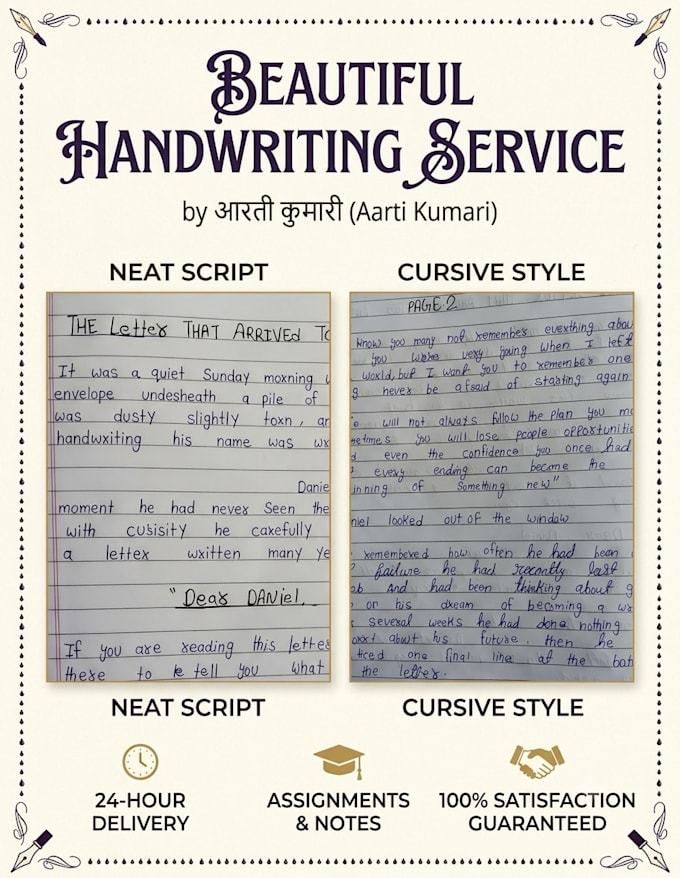 BEAUTIFUL
HANDWRITING SERVICE
by आरती कुमारी (Aarti Kumari)
NEAT SCRIPT
THE LetteR THAT ARRIVED TO
It was a quiet Sunday morning
envelope undesheath a pile of
was dusty slightly torn, an
handwriting his name was wr
Danie
moment he had never Seen the
with cusisity he carefully
a letter written many ye
"Dear DANiel.
If you are reading this letter
there to tell you what
CURSIVE STYLE
PAGE.2
know you many not remember everthing abou
you were very young when I left
world, but I want you to remember one
never be afraid of starting again
will not always follow the plan you ma
metimes you will lose people opportunitie
even the confidence you once had
every ending can become the
inning of Something new"
niel looked out of the window
remembered how often he had been
failure he had recently last
ob And had been thinking about g
or his dream of becoming a wr
several weeks he had done nothing
about his future. then he
ticed one final line at the bot
the letter.
NEAT SCRIPT
CURSIVE STYLE
24-HOUR
DELIVERY
ASSIGNMENTS
& NOTES
100% SATISFACTION
GUARANTEED